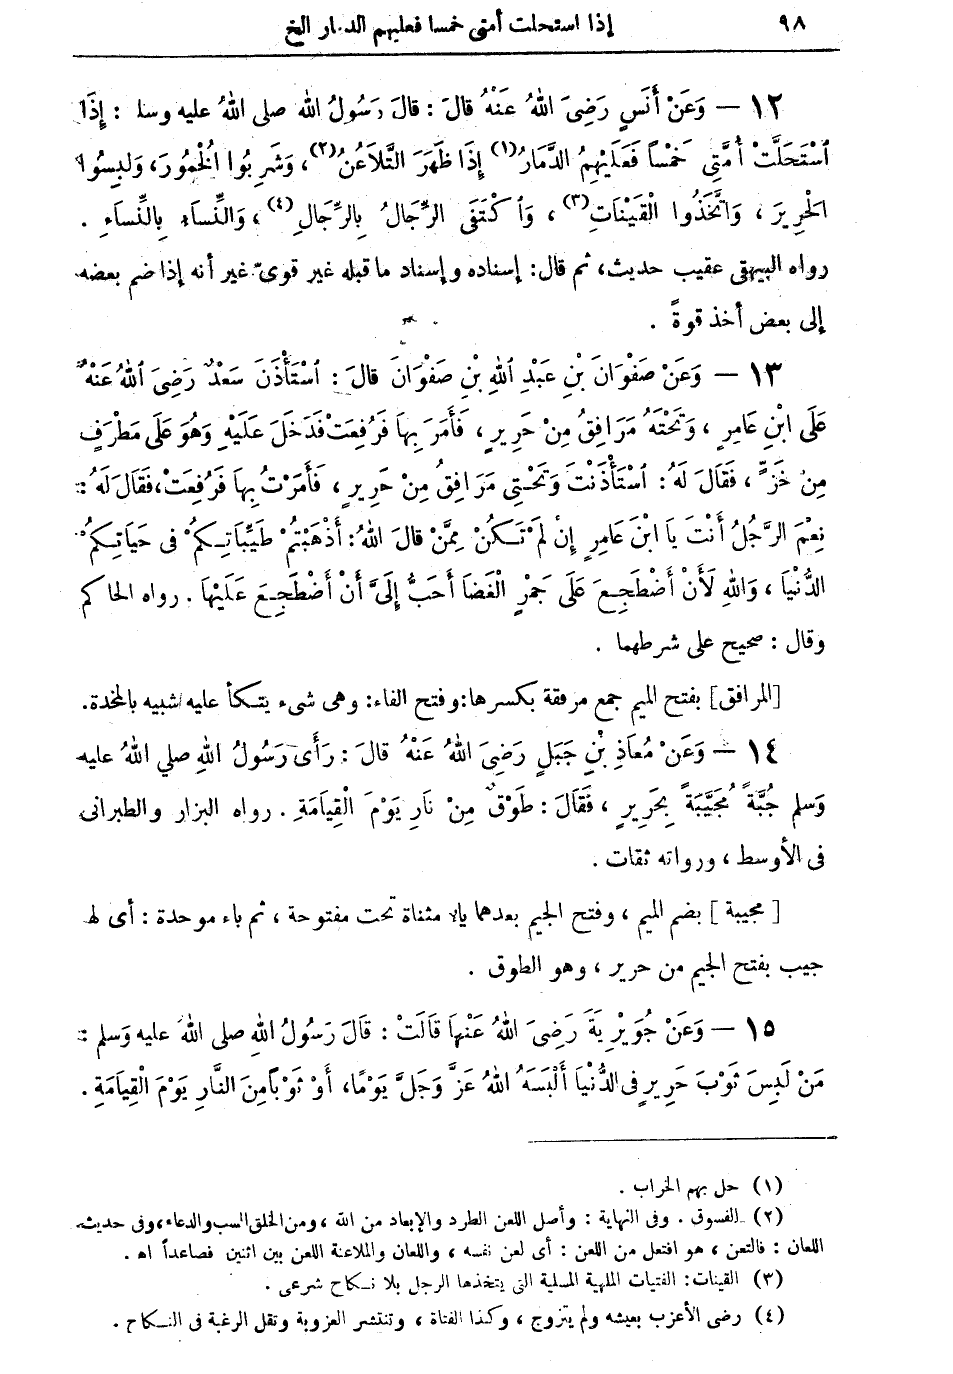 ٩٨ إذا استحلت أمتى خمسا فعليهم الدمار الخ
١٢ — وَعَنْ أَنَسٍ رَضِىَ اللهُ عَنْهُ قالَ : قالَ رَسُولُ الله صلى اللهُ عليه وسلم : إِذَا
اُسْتَحَلَّتْ أُمَّتِى خَمْساً فَعَلَيْهِمُ الدَّمَارُ(١) إِذَا ظَهَرَ التَّلاَعُنُ(٢) ، وَشَرِبُوا الْخُمُورَ، وَلَبِسُوا
الْحَرِيرَ ، وَاتَّخَذُوا الْقَيْنَاتِ(٣) ، وَاُكْتَفَى الرِّجَالُ بِالرِّجَالِ(٤) ، وَالنِّسَاءُ بِالنِّسَاءِ .
رواه البيهقى عقيب حديث، ثم قال: إسناده وإسناد ما قبله غير قوىّ غير أنه إذا ضم بعضه
إلى بعض أخذ قوةً .
١٣ — وَعَنْ صَفْوَانَ بْنِ عَبْدِ اللهِ بْنِ صَفْوَانَ قالَ : اُسْتَأْذَنَ سَعْدٌ رَضِىَ اللهُ عَنْهُ
عَلَى ابْنِ عَامِرٍ ، وَتَحْتَهُ مَرَافِقُ مِنْ حَرِيرٍ ، فَأَمَرَ بِهَا فَرُفِعَتْ فَدَخَلَ عَلَيْهِ وَهُوَ عَلَى مَطْرَفٍ
مِنْ خَزٍّ ، فَقَالَ لَهُ : اُسْتَأْذَنْتَ وَتَحْتِى مَرَافِقُ مِنْ حَرِيرٍ ، فَأَمَرْتُ بِهَا فَرُفِعَتْ، فَقَالَ لَهُ :
نِعْمَ الرَّجُلُ أَنْتَ يَا ابْنَ عَامِرٍ إِنْ لَمْ تَكُنْ مِمَّنْ قالَ اللهُ : أَذْهَبْتُمْ طَيِّبَاتِكُمْ فى حَيَاتِكُمُ
الدُّنْيَا ، وَاللهِ لَأَنْ أَضْطَجِعَ عَلَى جَمْرِ الْغَضَا أَحَبُّ إِلَىَّ أَنْ أَضْطَجِعَ عَلَيْهَا . رواه الحاكم
وقال : صحيح على شرطهما .
[المرافق] بفتح الميم جمع مرفقة بكسرها: وفتح الفاء: وهى شىء يتكأ عليه شبيه بالمخدة.
١٤ — وَعَنْ مُعَاذِ بْنِ جَبَلٍ رَضِىَ اللهُ عَنْهُ قالَ : رَأَى رَسُولُ اللهِ صلي اللهُ عليه
وَسلم جُبَّةً مُجَيَّبَةً بِحَرِيرٍ ، فَقَالَ : طَوْقٌ مِنْ نَارٍ يَوْمَ الْقِيَامَةِ . رواه البزار والطبرانى
فى الأوسط ، ورواته ثقات .
[ مجيبة ] بضم الميم ، وفتح الجيم بعدهما ياء مثناة تحت مفتوحة ، ثم باء موحدة : أى لها
جيب بفتح الجيم من حرير ، وهو الطوق .
١٥ — وَعَنْ جُوَيْرِيَةَ رَضِىَ اللهُ عَنْهَا قَالَتْ : قَالَ رَسُولُ اللهِ صلى اللهُ عليه وَسلم :
مَنْ لَبِسَ ثَوْبَ حَرِيرٍ فى الدُّنْيَا أَلْبَسَهُ اللهُ عَزَّ وَجَلَّ يَوْمًا، أَوْ ثَوْبًا مِنَ النَّارِ يَوْمَ الْقِيَامَةِ .
(١) حل بهم الخراب .
(٢) الفسوق . وفى النهاية : وأصل اللعن الطرد والإبعاد من الله ، ومن الخلق السب والدعاء، وفى حديث
اللعان : فالتعن ، هو افتعل من اللعن : أى لعن نفسه ، واللعان والملاعنة اللعن بين اثنين فصاعداً اه .
(٣) القينات: الفتيات الملهية المسلية التى يتخذها الرجل بلا نكاح شرعى .
(٤) رضى الأعزب بعيشه ولم يتزوج ، وكذا الفتاة ، وتنتشر العزوبة وتقل الرغبة فى النكاح .